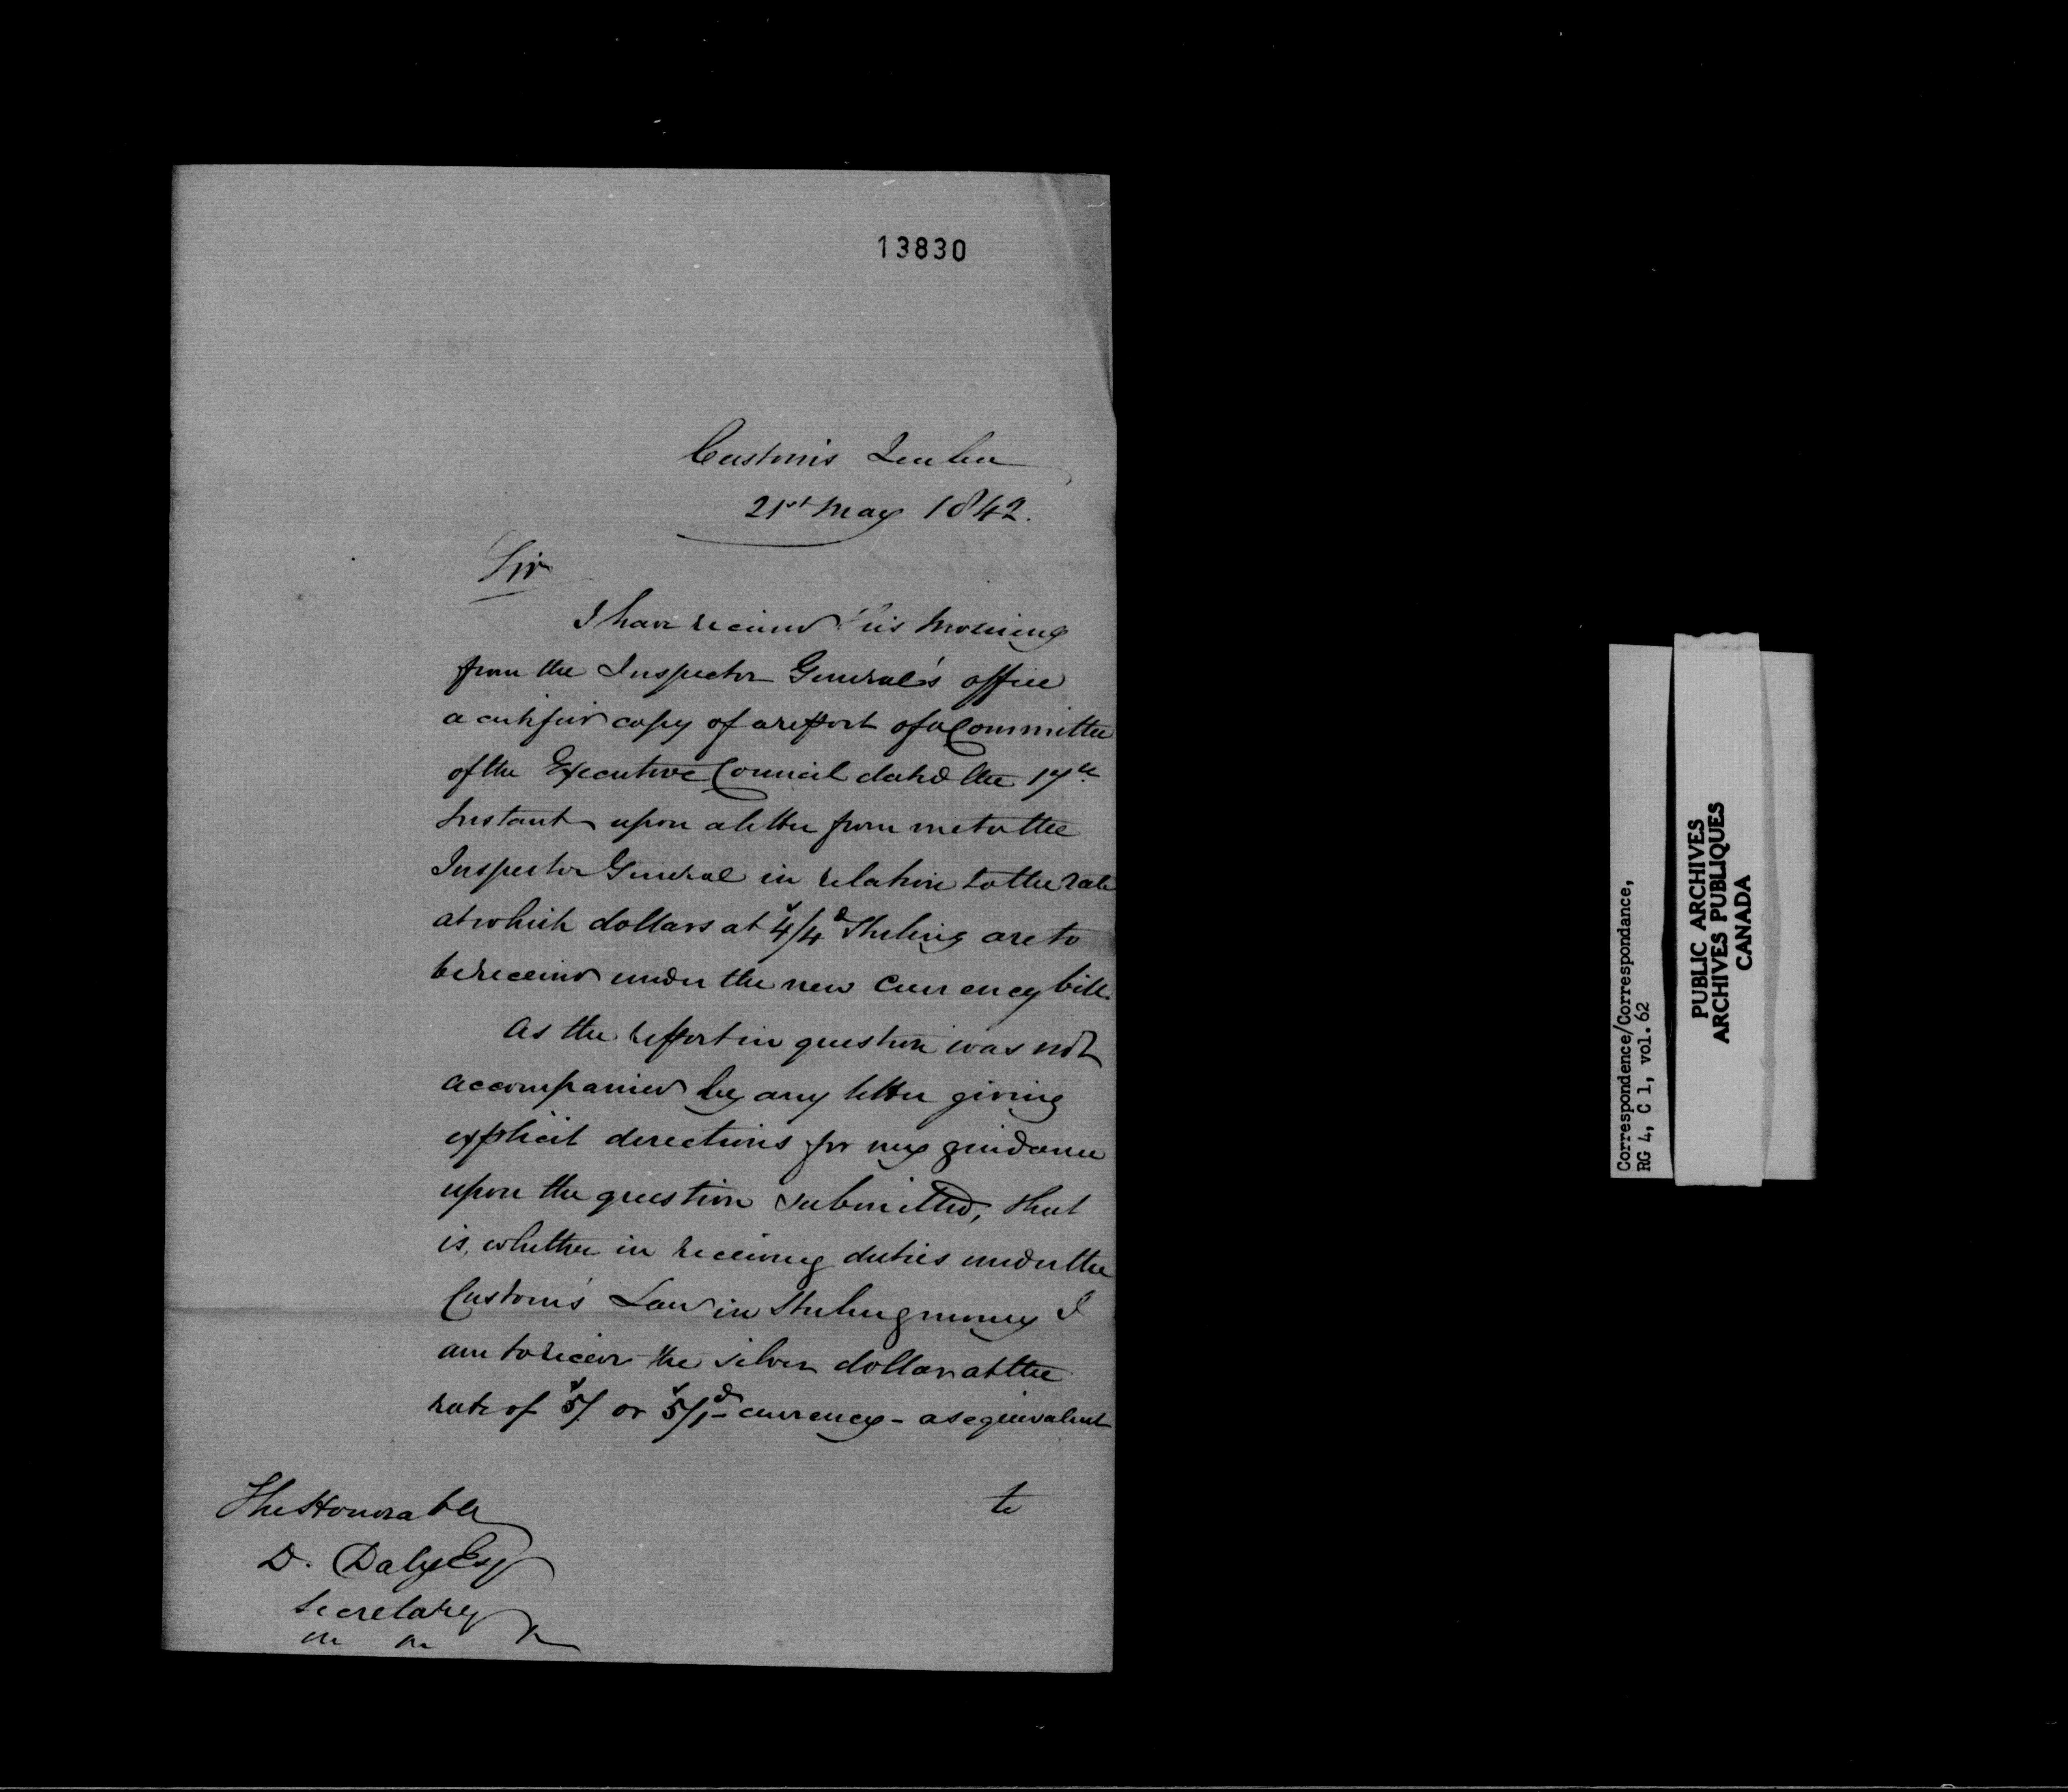 13830
Customs Quebec
21st May 1842.
Sir
I have received this morning
from the Inspector General's office
a certified copy of a report of a Committee
of the Executive Council dated the 17th
Instant upon a letter from me to the
Inspector General in relation to the rate
at which dollars at 4s/4d Sterling are to
be received under the new Currency bill.
As the report in question was not
accompanied by any letter giving
explicit directions for my guidance
upon the question submitted, that
is, whether in receiving duties under the
Customs' Laws in Sterling money I
am to receive the silver dollar at the
rate of 5s/ or 5s/1d - currency - as equivalent
to
The Honorable
D. Daly Esq
Secretary
Correspondence/Correspondance,
RG 4, C 1, vol. 62
PUBLIC ARCHIVES
ARCHIVES PUBLIQUES
CANADA